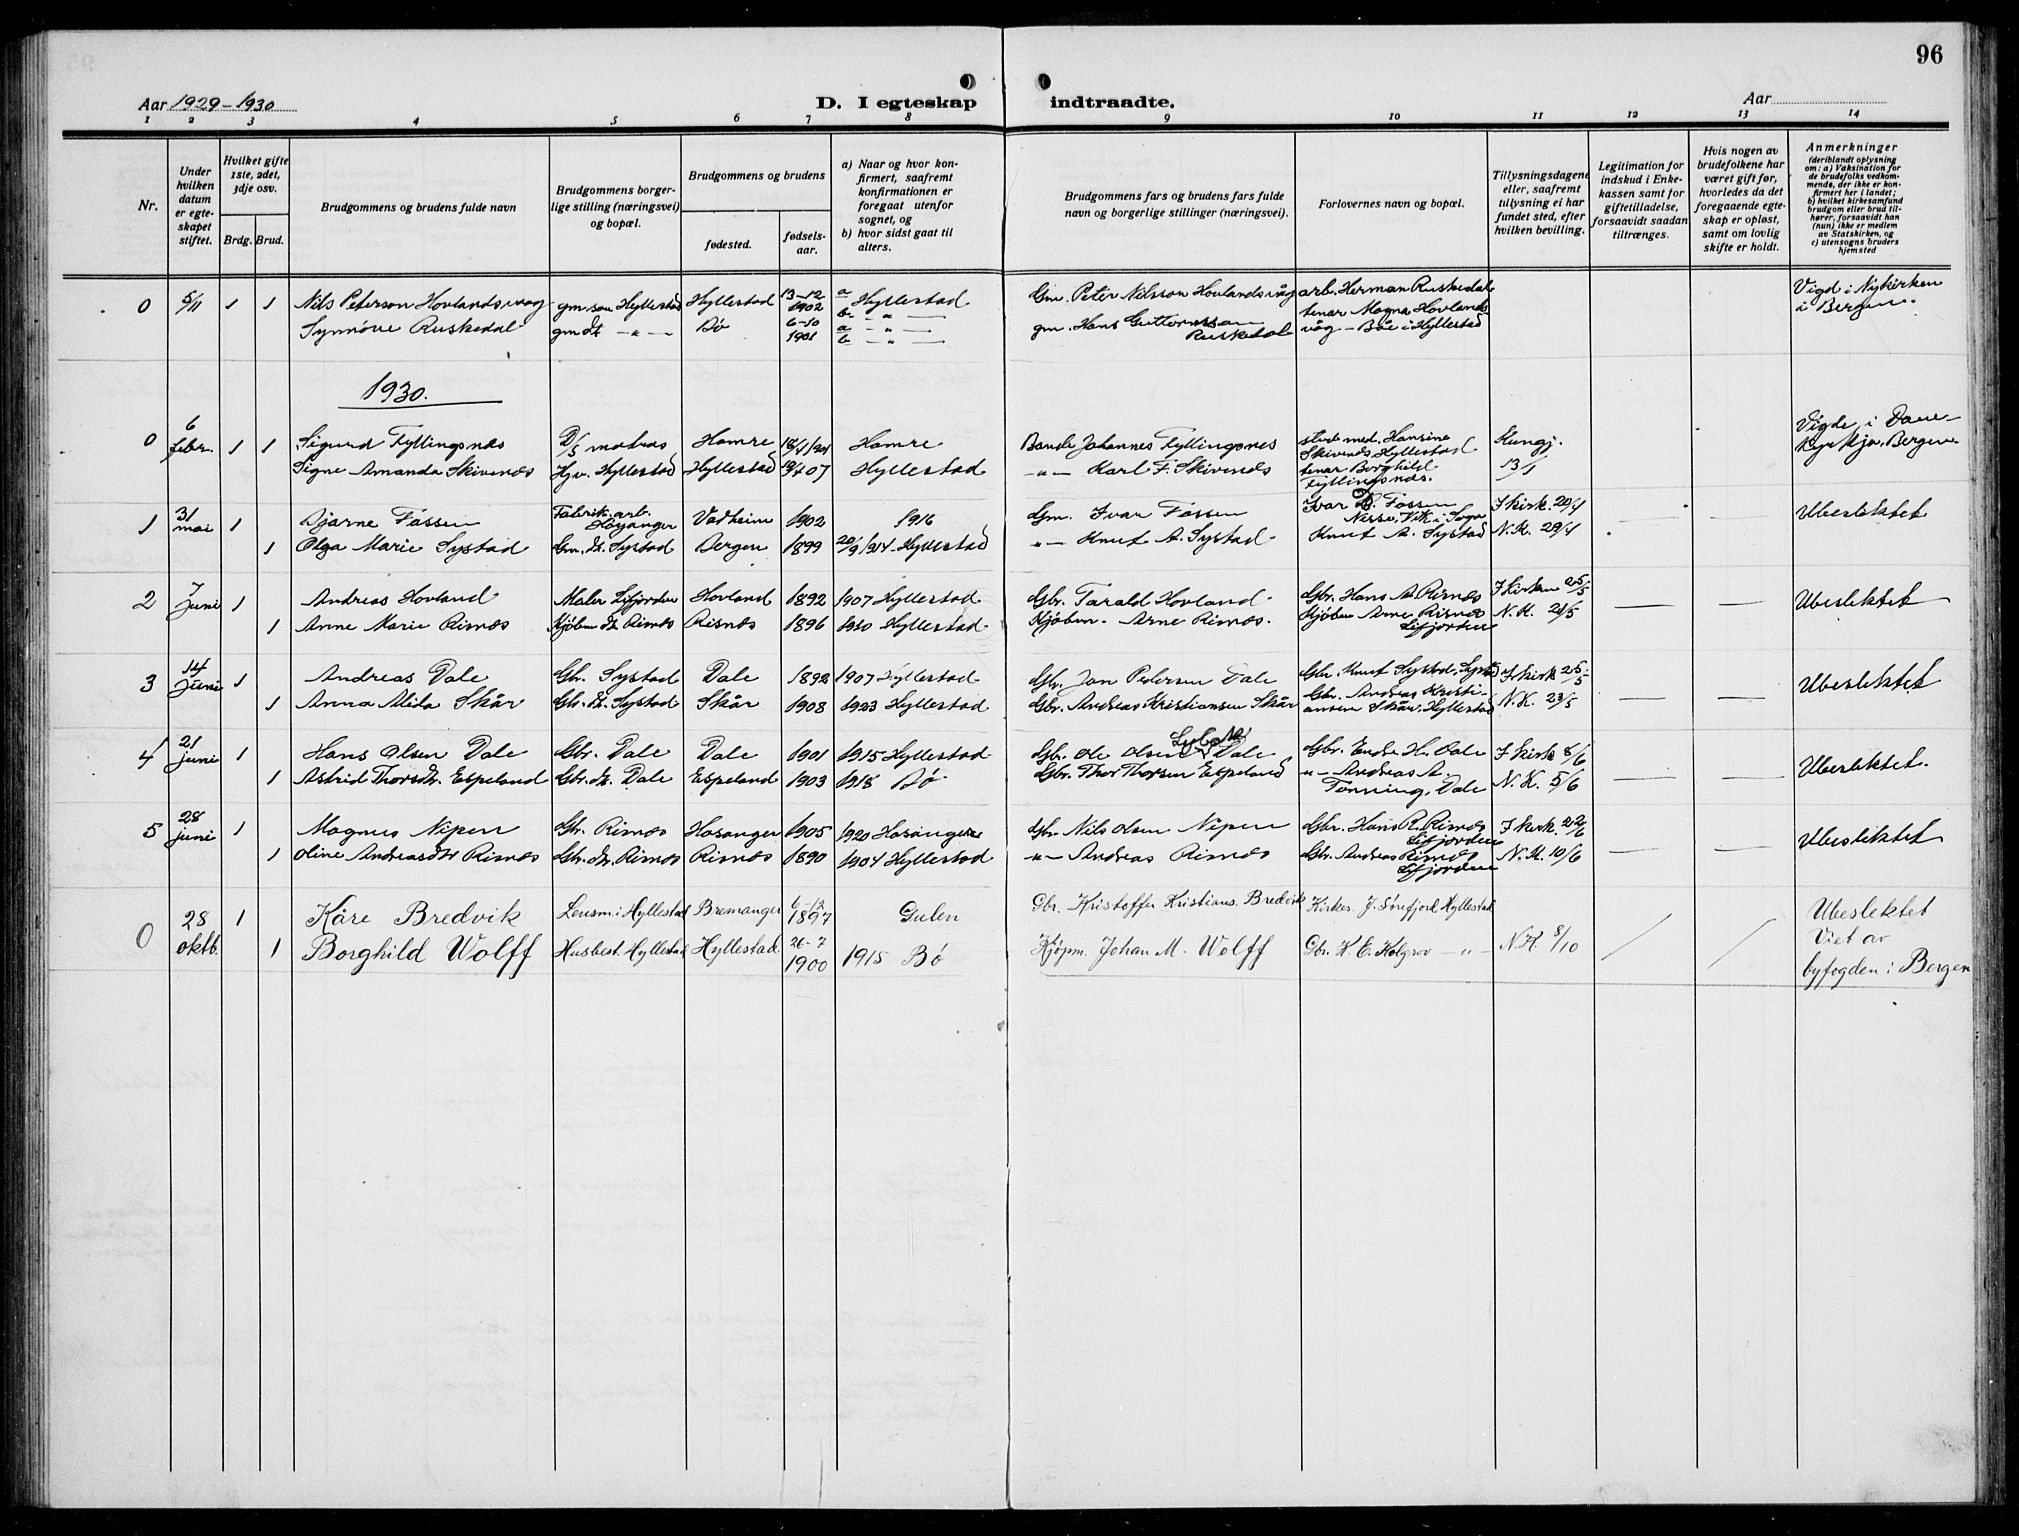 96
Aar 1929-1930
D. I egteskap indtraadte.
Aar
1 2 3 4 5 6 7 8 9 10 11 12 13 14
Nr.
Under hvilken datum er egteskapet stiftet.
Hvilket gifte 1ste, 2det, 3dje osv.
Brdg. Brud.
Brudgommens og brudens fulde navn
Brudgommens borgerlige stilling (næringsvei) og bopæl.
Brudgommens og brudens
fødested.
fødselsaar.
a) Naar og hvor konfirmert, saafremt konfirmationen er foregaat utenfor sognet, og
b) hvor sidst gaat til alters.
Brudgommens fars og brudens fars fulde navn og borgerlige stillinger (næringsvei).
Forlovernes navn og bopæl.
Tillysningsdagene eller, saafremt tillysning ei har fundet sted, efter hvilken bevilling.
Legitimation for indskud i Enkekassen samt for giftetilladelse, forsaavidt saadan tiltrænges.
Hvis nogen av brudefolkene har været gift før, hvorledes da det foregaaende egteskap er opløst, samt om lovlig skifte er holdt.
Anmerkninger
(deriblandt oplysning om: a) Vaksination for de brudefolks vedkommende, der ikke er konfirmert her i landet; b) hvilket kirkesamfund brudgom eller brud tilhører, forsaavidt han (hun) ikke er medlem av Statskirken, og c) utensogns bruders hjemsted
0 5/11 1 1 Nils Peterson Hovlandsvåg gm. søn Hyllestad Hyllestad 13-12 1902 a Hyllestad b - " - Gm. Peter Nilsson Hovlandsvåg arb. Herman Ruskedal Vigd i Nykirken i Bergen.
Synnöve Ruskedal gm dt - " - Bø 6-10 1901 a - " - b - " - gm. Hans Guttormsson Ruskedal tenar Magna Hovlandsvåg - Bøe i Hyllestad
1930.
0 6 febr. 1 1 Sigurd Fyllingsnes D/S matros Hamre 18/4/1901 Hamre Bonde Johannes Fyllingsnes stud. med. Hansine Skivenes Hyllestad Kungj. Vigde i Danekyrkja, Bergen
Signe Amanda Skivenes Hjv. Hyllestad Hyllestad 07 Hyllestad - " - Karl F. Skivenes tenar Borghild Fyllingsnes. 13/1
1 31 mai 1 Bjarne Fossen Fabrik.arb. Höyanger Vadheim 1902 1916 Gm. Ivar Fossen Ivar D. Fossen Nesse, Vik i Sogn I kirk. 20/4 Ubeslektet
1 Olga Marie Systad Gm. dt. Systad Bergen 1899 20/9 1914 Hyllestad - " - Knut A. Systad Knut A. Systad N.K. 29/4
2 7 Juni 1 Andreas Hovland Maler Lifjorden Hovland 1892 1907 Hyllestad Gbr. Tarald Hovland Gbr. Hans A. Risnes I kirken 25/5 Ubeslektet
1 Anne Marie Risnes Kjøbm. dt. Risnes Risnes 1896 1910 Hyllestad Kjøbm. Arne Risnes. Kjøbm. Arne Risnes Lifjorden N.K. 21/5
3 14 Juni 1 Andreas Dale Gbr. Systad Dale 1892 1907 Hyllestad Gbr. Jon Pedersen Dale Gbr. Knut Systad, Systad I kirk 25/5 Ubeslektet
1 Anna Alida Skår Gbr. dt. Systad Skår 1908 1923 Hyllestad Gbr. Andreas Kristiansen Skår Gbr. Andreas Kristiansen Skår, Hyllestad N.K. 23/5
4 21 juni 1 Hans Olsen Dale Gbr. Dale Dale 1901 1915 Hyllestad Gbr. Ole Olsen Dale Gbr. Endre H. Dale I kirk 8/6 Ubeslektet.
1 Astrid Thorsdtr. Espeland Gbr. dt. Dale Espeland 1903 1918 Bø Gbr. Thor Thorsen Espeland " - Andreas A. Tønning, Dale N.K. 5/6
5 28 juni 1 Magnus Nipen Gbr. Risnes Hosanger 1905 1920 Hosanger Gbr. Nils Olsen Nipen Gbr. Hans R. Risnes Lifjorden I kirk. 22/6 Ubeslektet
1 Oline Andreasdtr Risnes Gbr. dt. Risnes Risnes 1890 1904 Hyllestad - " - Andreas Risnes Gbr. Andreas Risnes Lifjorden N.K. 10/6
0 28 oktb. 1 Kåre Bredvik Lensm. i Hyllestad Bremanger 6-12 1897 Gulen Gbr. Kristoffer Kristians. Bredvik Kirkes. J. Sørefjord Hyllestad Ubeslektet
1 Borghild Wolff Husbest. Hyllestad Hyllestad 26-7 1900 1915 Bø Kjøpm. Johan M. Wolff Gbr. K. E. Kolgrov - " - N.K. 8/10 Viet av byfogden i Bergen